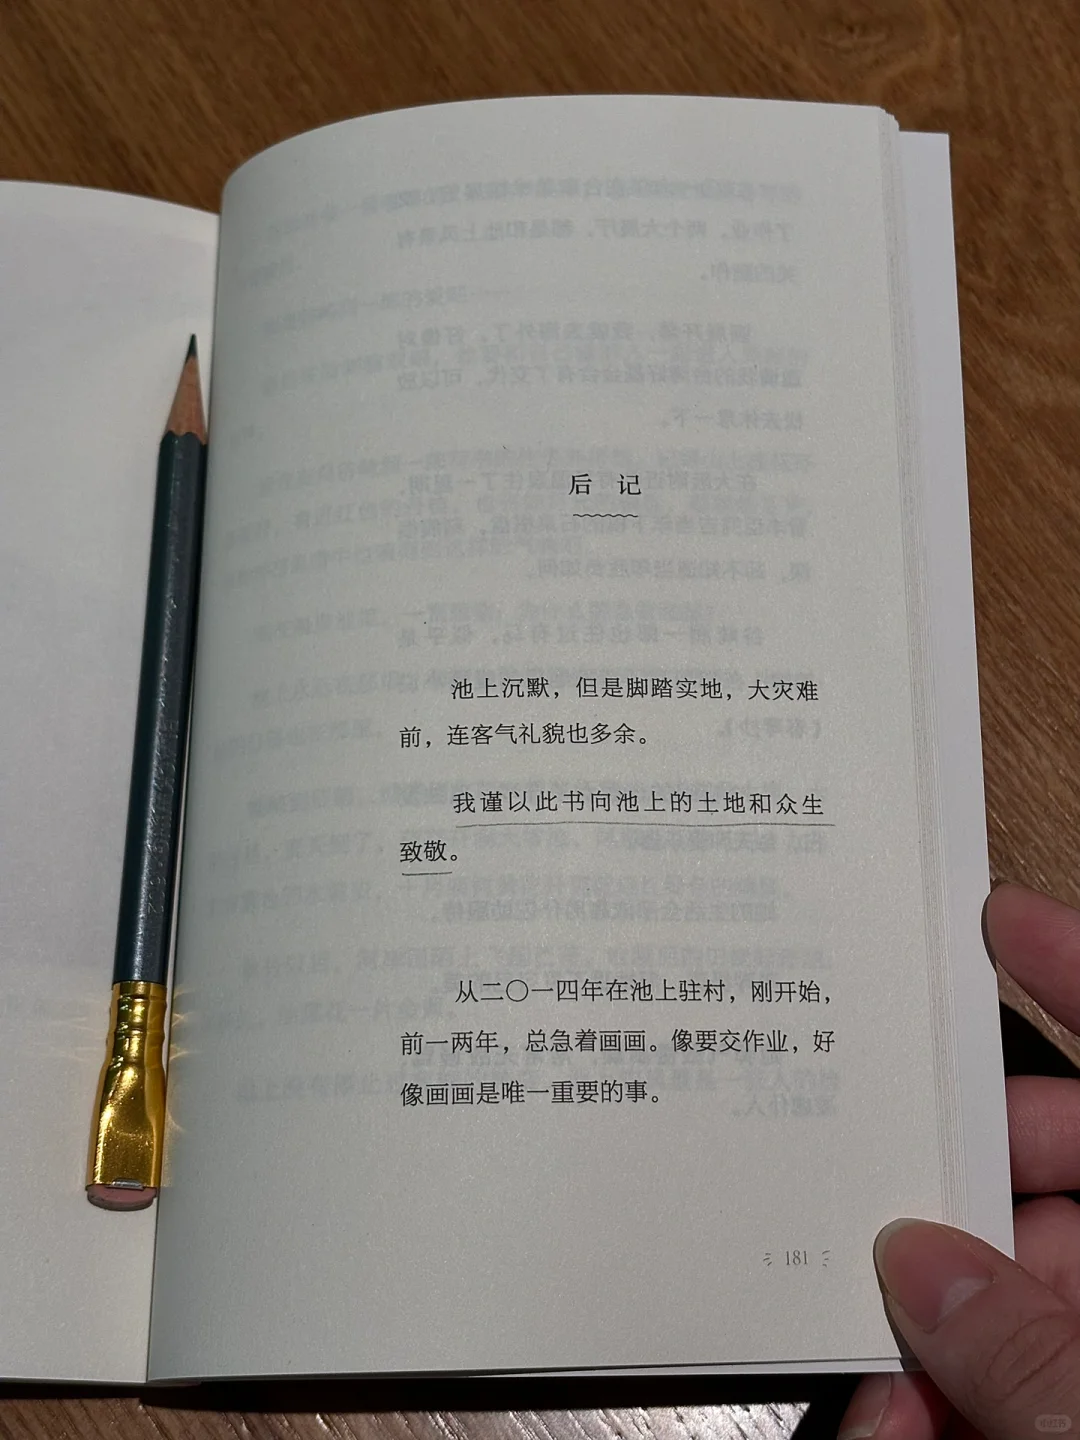 后 记
池上沉默，但是脚踏实地，大灾难
前，连客气礼貌也多余。
我谨以此书向池上的土地和众生
致敬。
从二〇一四年在池上驻村，刚开始，
前一两年，总急着画画。像要交作业，好
像画画是唯一重要的事。
181
小红书